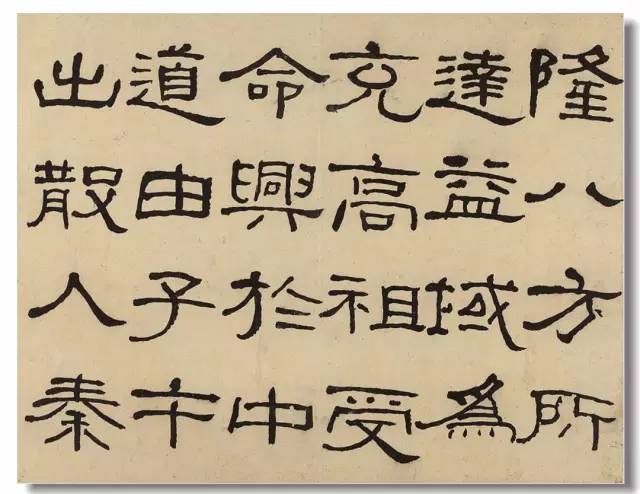 隆八方所
達益域為
充高祖受
命興於中
道由子午
出散入秦